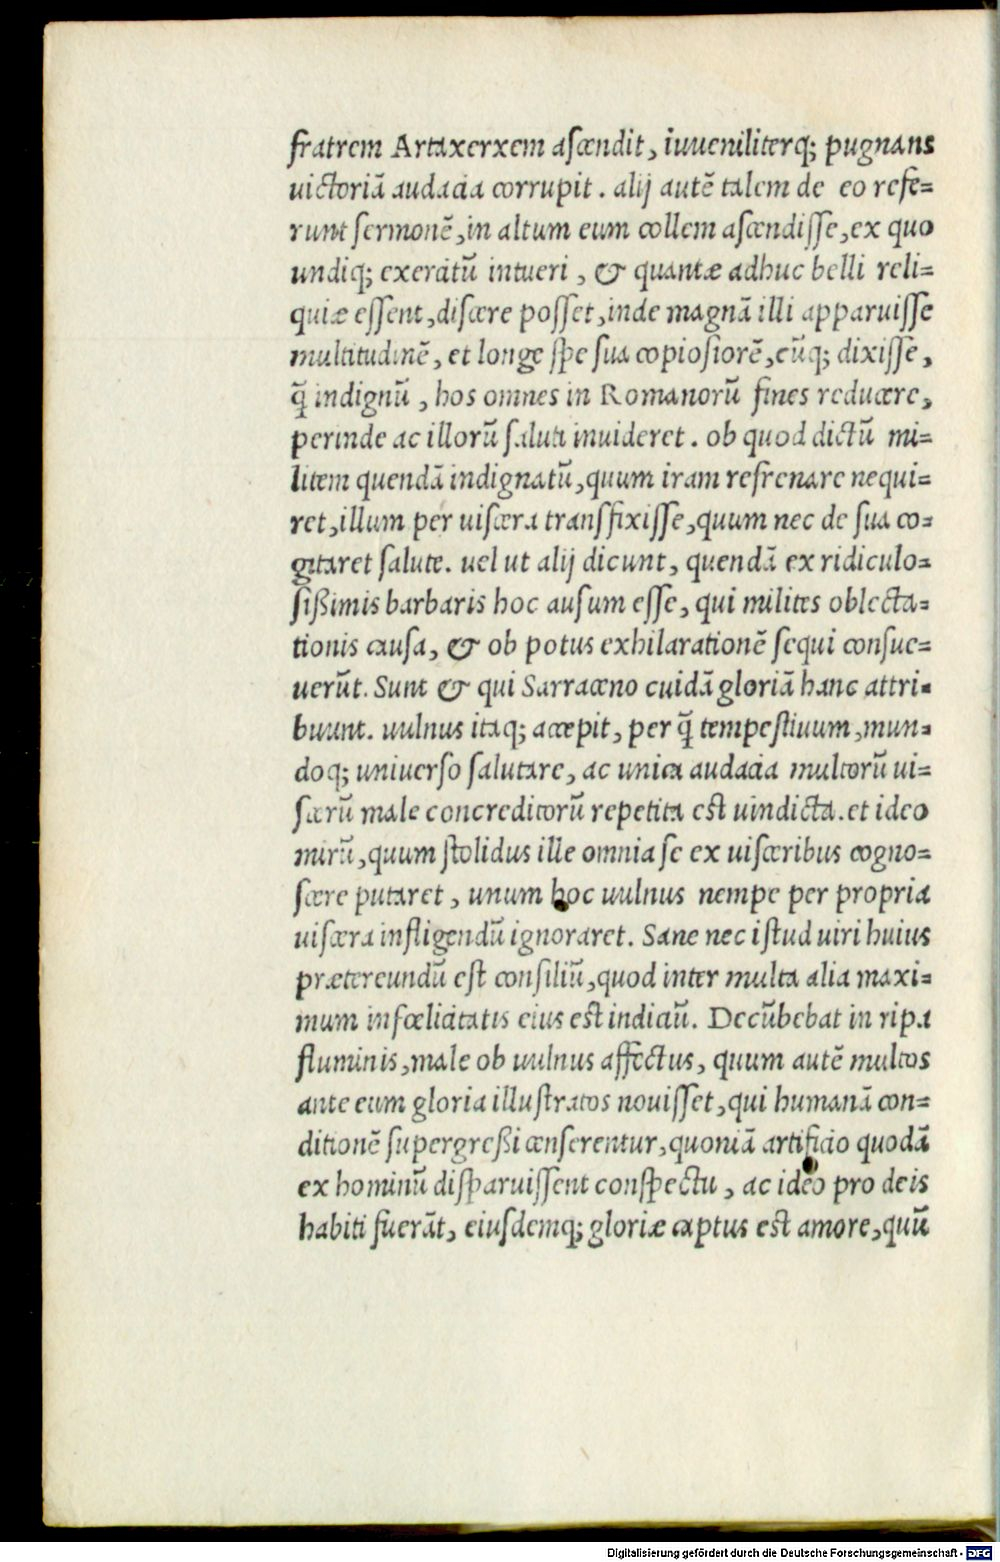 fratrem Artaxerxem ascendit, iuueniliterq; pugnans
uictoriā audacia corrupit. alij autē talem de eo refe=
runt sermonē, in altum eum collem ascendisse, ex quo
undiq; exercitū intueri, & quantæ adhuc belli reli=
quiæ essent, discere posset, inde magnā illi apparuisse
multitudinē, et longe spe sua copiosiorē, eūq; dixisse,
q̄ indignū, hos omnes in Romanorū fines reducere,
perinde ac illorū saluti inuideret. ob quod dictū mi=
litem quendā indignatū, quum iram refrenare nequi=
ret, illum per uiscera transfixisse, quum nec de sua co=
gitaret salute. uel ut alij dicunt, quendā ex ridiculo=
sißimis barbaris hoc ausum esse, qui milites oblecta=
tionis causa, & ob potus exhilarationē sequi consue=
uerūt. Sunt & qui Sarraceno cuidā gloriā hanc attri=
buunt. uulnus itaq; accepit, per q̄ tempestiuum, mun=
doq; uniuerso salutare, ac unica audacia multorū ui=
scerū male concreditorū repetita est uindicta. et ideo
mirū, quum stolidus ille omnia se ex uisceribus cogno=
scere putaret, unum hoc uulnus nempe per propria
uiscera infligendū ignoraret. Sane nec istud uiri huius
prætereundū est consiliū, quod inter multa alia maxi=
mum infœlicitatis eius est indiciū. Decūbebat in ripa
fluminis, male ob uulnus affectus, quum autē multos
ante eum gloria illustratos nouisset, qui humanā con=
ditionē supergreßi censerentur, quoniā artificio quodā
ex hominū disparuissent conspectu, ac ideo pro deis
habiti fuerāt, eiusdemq; gloriæ captus est amore, quū
Digitalisierung gefördert durch die Deutsche Forschungsgemeinschaft - DFG